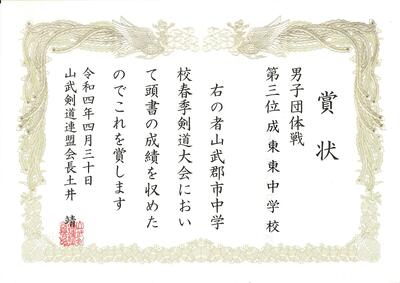 賞状
男子団体戦
第三位 成東東中学校
右の者山武郡市中学
校春季剣道大会におい
て頭書の成績を収めた
のでこれを賞します
令和四年四月三十日
山武剣道連盟会長土井 靖